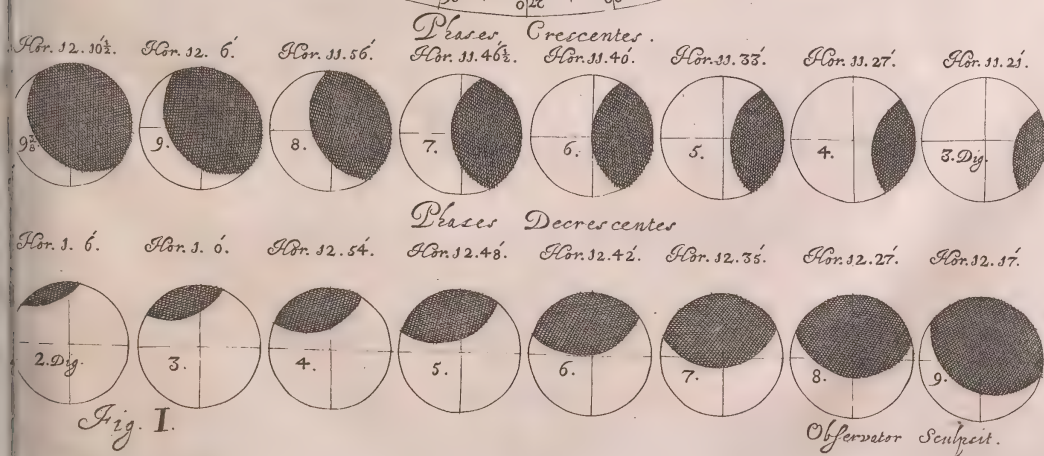 Phases Crescentes.
Hor. 12. 10½. Hor. 12. 6́. Hor. 11. 56́. Hor. 11. 46́½. Hor. 11. 40́. Hor. 11. 33́. Hor. 11. 27́. Hor. 11. 21́.
9⅜ 9. 8. 7. 6. 5. 4. 3. Dig.
Phases Decrescentes
Hor. 1. 6́. Hor. 1. 0́. Hor. 12. 54́. Hor. 12. 48́. Hor. 12. 42́. Hor. 12. 35́. Hor. 12. 27́. Hor. 12. 17́.
2. Dig. 3. 4. 5. 6. 7. 8. 9.
Fig. I.
Observator Sculpsit.